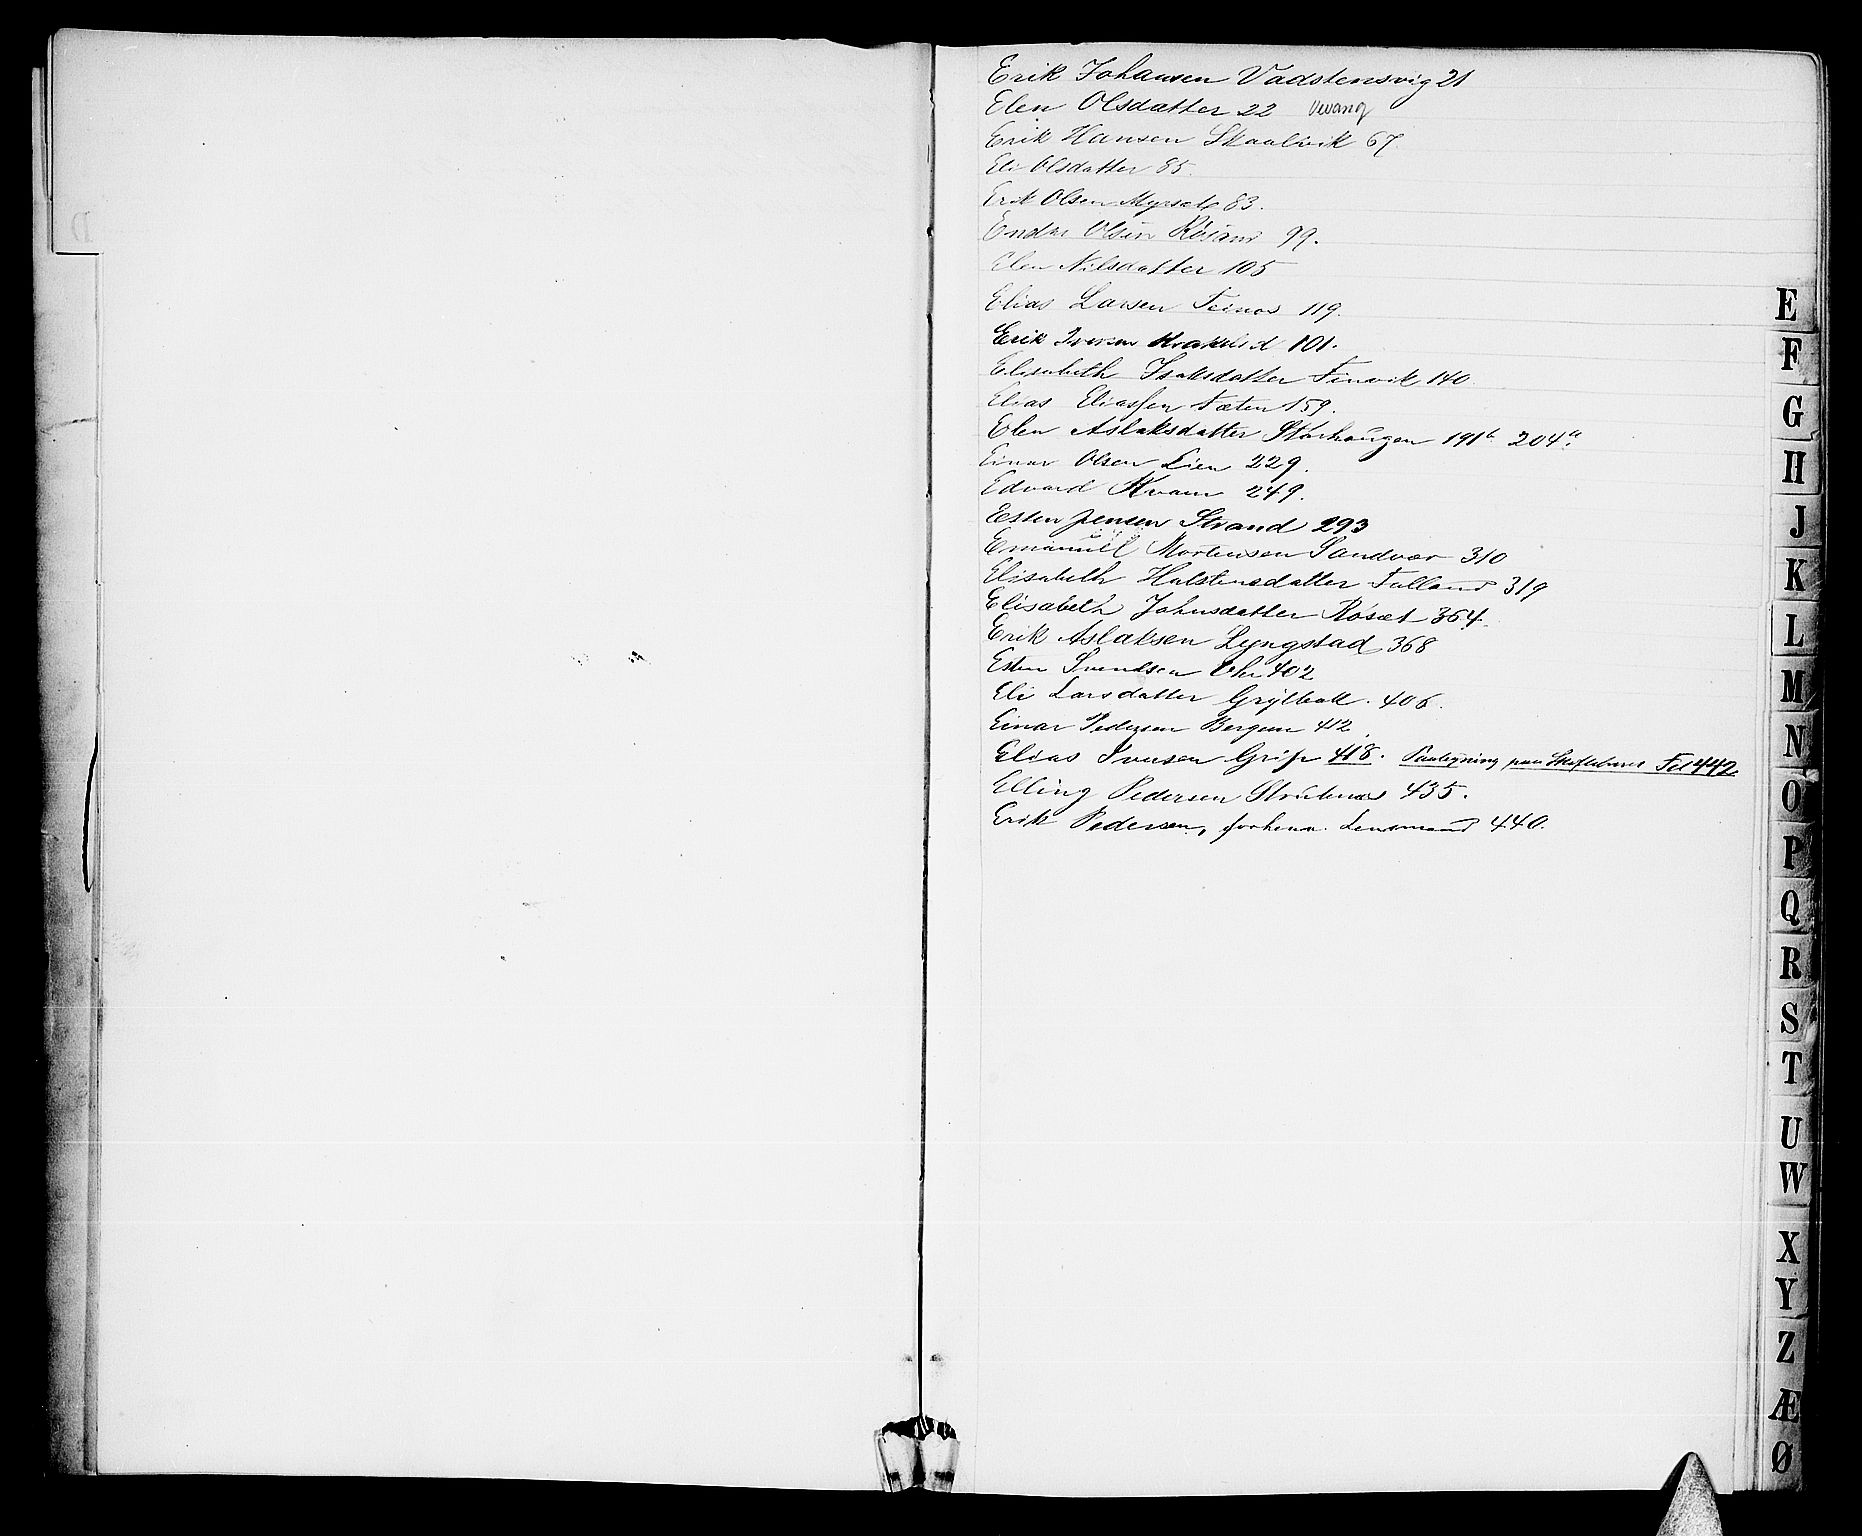 Erik Johansen Vadstensvig 21
Elen Olsdatter 22 Vevang
Erik Hansen Skaalvik 67
Eli Olsdatter 85.
Erik Olsen Myrset 83.
Endre Olsen Røsand 99.
Elen Nilsdatter 105
Elias Larsen 119.
Erik Iversen 101.
Elisabeth Isaksdatter 140.
Elias Eliassen 159.
Elen Aslaksdatter Storhaugen 191b 204a.
Einar Olsen Lien 229.
Edvard Kvam 249.
Esten Jensen Strand 293
Emanuel Mortensen Sandvær 310
Elisabeth Halstensdatter Folland 319
Elisabeth Johnsdatter Røsæt 364.
Erik Aslaksen Lyngstad 368
Esten Svendsen 402
Eli Larsdatter 406.
Einar Pedersen Bergem 412
Elias Iversen Grip 418. Paategning paa Skiftebrevet Fol 442.
Elling Pedersen 435.
Erik Pedersen, forhenv. Lensmand 440.
D
E
F
G
H
J
K
L
M
N
O
P
Q
R
S
T
U
W
X
Y
Z
Æ
Ø